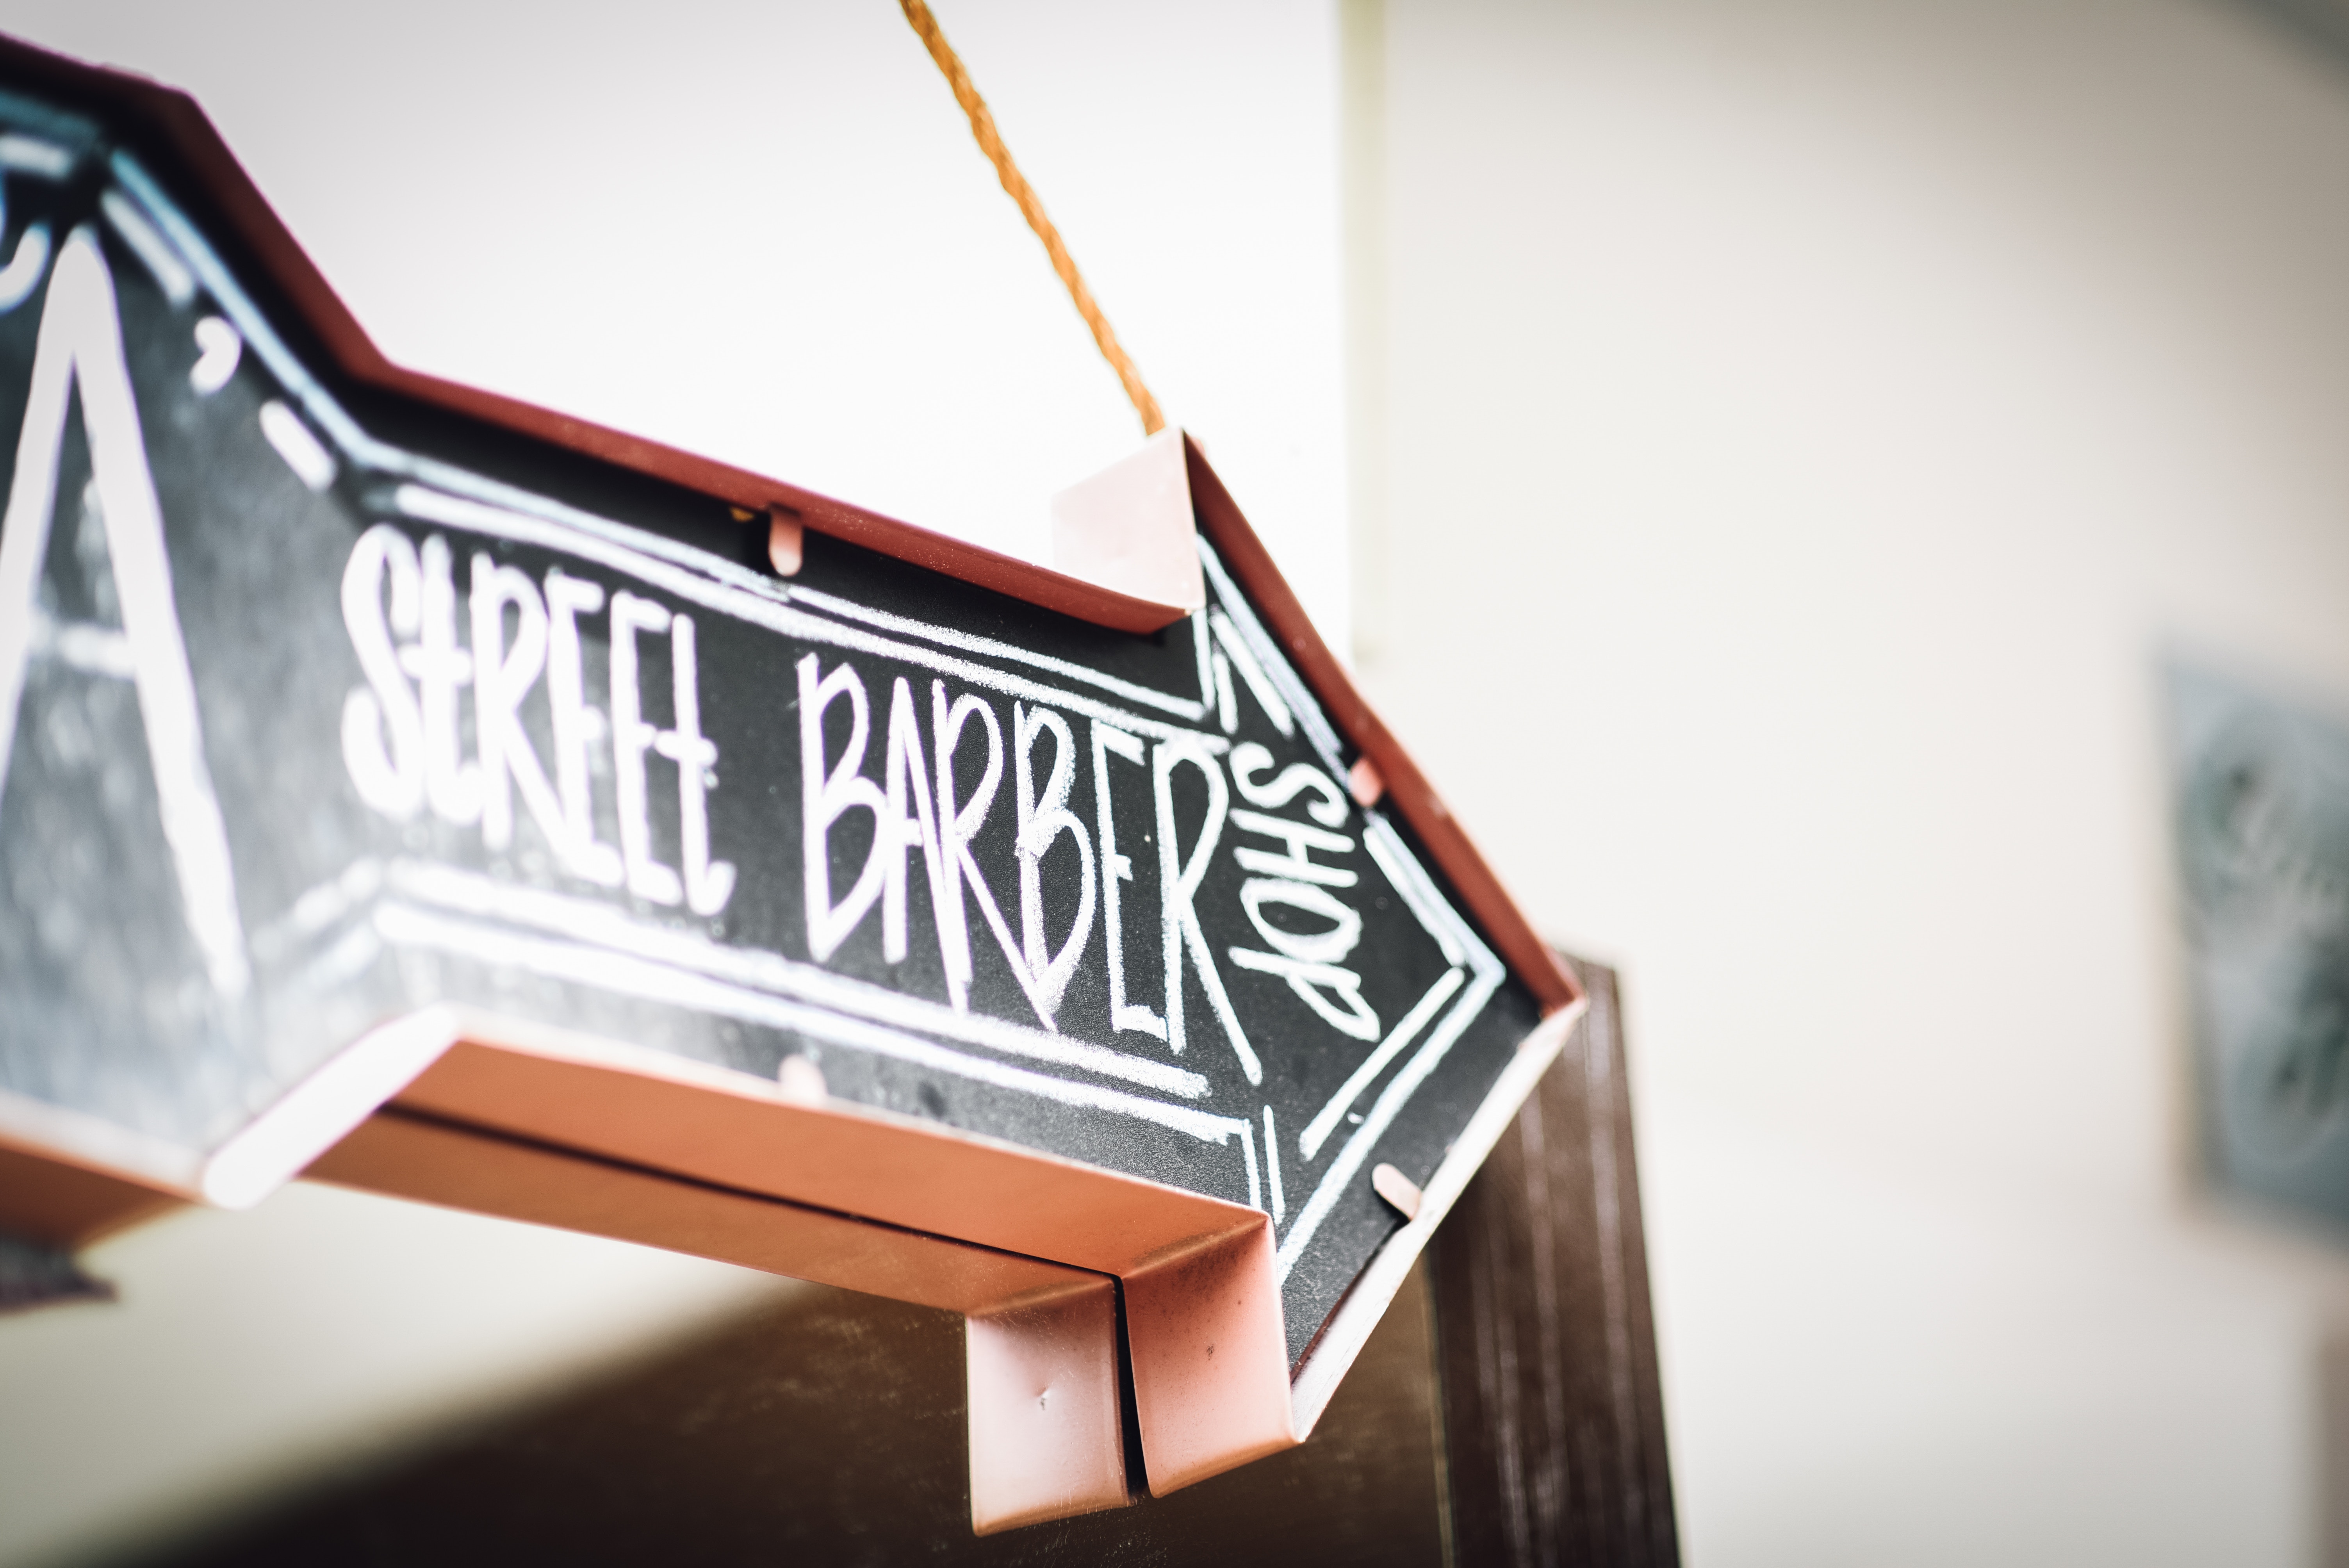 A
STREET BARBER
SHOP